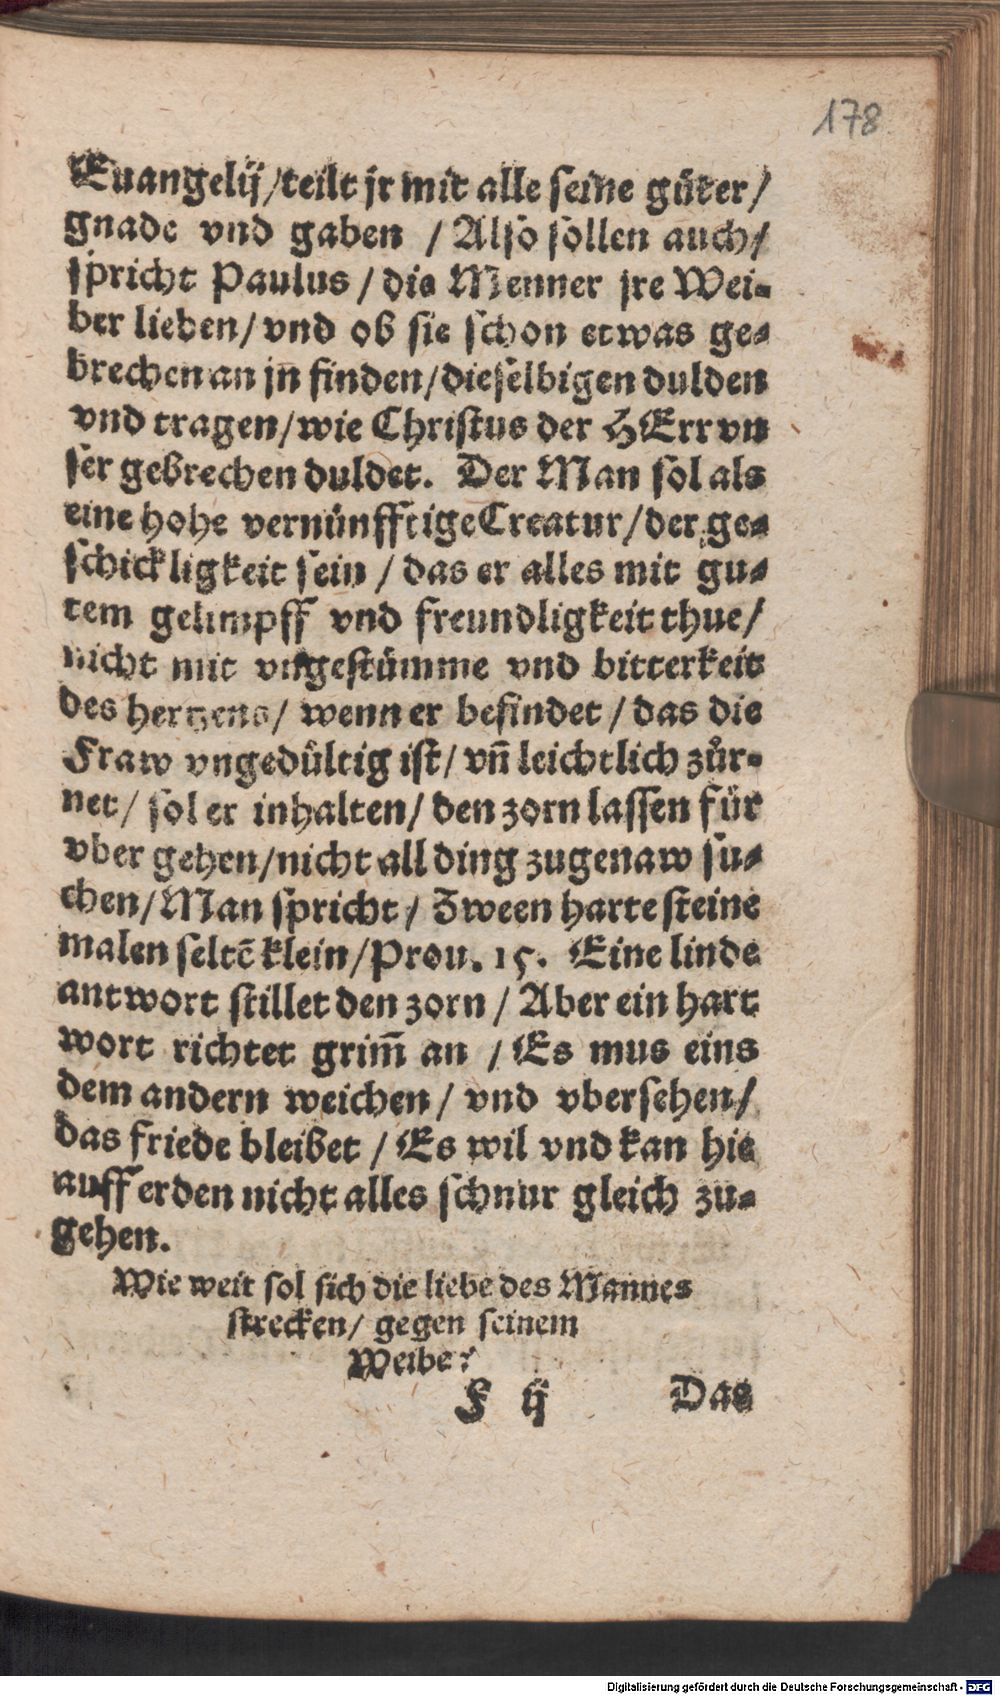 178
Euangelij/teilt jr mit alle seine güter/
gnade vnd gaben / Also sollen auch/
spricht Paulus / die Menner jre Wei-
ber lieben/ vnd ob sie schon etwas ge-
brechen an jn finden/dieselbigen dulden
vnd tragen/wie Christus der HErr vn
ser gebrechen duldet. Der Man sol als
eine hohe vernünfftige Creatur/der ge-
schickligkeit sein / das er alles mit gu-
tem gelimpff vnd freundligkeit thue/
nicht mit vngestümme vnd bitterkeit
des hertzens/ wenn er befindet / das die
Fraw vngedültig ist/ vñ leichtlich zür-
net/ sol er inhalten/ den zorn lassen für
vber gehen/nicht all ding zugenaw su-
chen/Man spricht/ Zween harte steine
malen seltē klein/Prou. 15. Eine linde
antwort stillet den zorn / Aber ein hart
wort richtet grim̄ an / Es mus eins
dem andern weichen/ vnd vbersehen/
das friede bleibet / Es wil vnd kan hie
auff erden nicht alles schnur gleich zu-
gehen.
Wie weit sol sich die liebe des Mannes
strecken/ gegen seinem
Weibe?
F ij Das
Digitalisierung gefördert durch die Deutsche Forschungsgemeinschaft - DFG